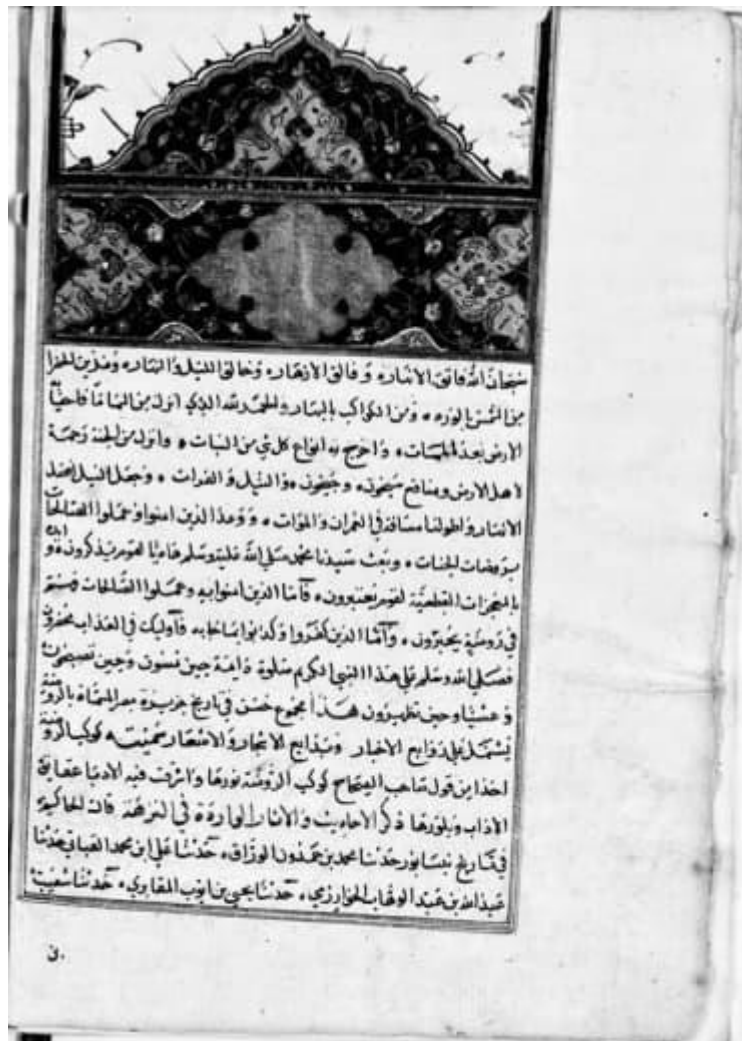 سبحان الله فاتق الانهار وفالق الازهار وخالق الليل والنهار ومزين الخضرا
من الشمس بالنور ومن الكواكب بالبهار والحمد لله الذي انزل من السماء ماء فاحيا
الارض بعد الممات واخرج به انواع كل شي من النبات وانزل من الجنة رحمة
لاهل الارض ومنافع سيحون وجيحون والنيل والفرات وجعل النيل افضل
الانهار واطولها مسافة في العمران والموات ووعد الذين امنوا وعملوا الصالحات
بروضات الجنات وبعث سيدنا محمد صلى الله عليه وسلم هاديا لقوم يذكرون وايده
بالمعجزات القطعية لقوم يعتبرون فاما الذين امنوا به وعملوا الصالحات فهم
في روضة يحبرون واما الذين كفروا وكذبوا بما جا به فاوليك في العذاب محضرون
فصلى الله وسلم على هذا النبي الكريم صلوة دايمة حين تمسون وحين تصبحون
وعشيا وحين تظهرون هذا مجموع حسن في تاريخ جزيرة مصر المسماة بالروضة
يشتمل على روايع الاخبار وبدايع الاثار والاشعار سميته كوكب الروضة
اخذا من قول صاحب الصحاح كوكب الروضة نورها واشرقت فيه الادبا عقايق
الاداب وبلورها ذكر الاحاديث والاثار الواردة في النزهة قال الحاكم
في تاريخ نيسابور حدثنا محمد بن حمدون الوراق حدثنا علي ابن محمد القباني حدثنا
عبد الله بن عبد الوهاب الخوارزمي حدثنا يحيى بن ايوب المقابري حدثنا شعيب